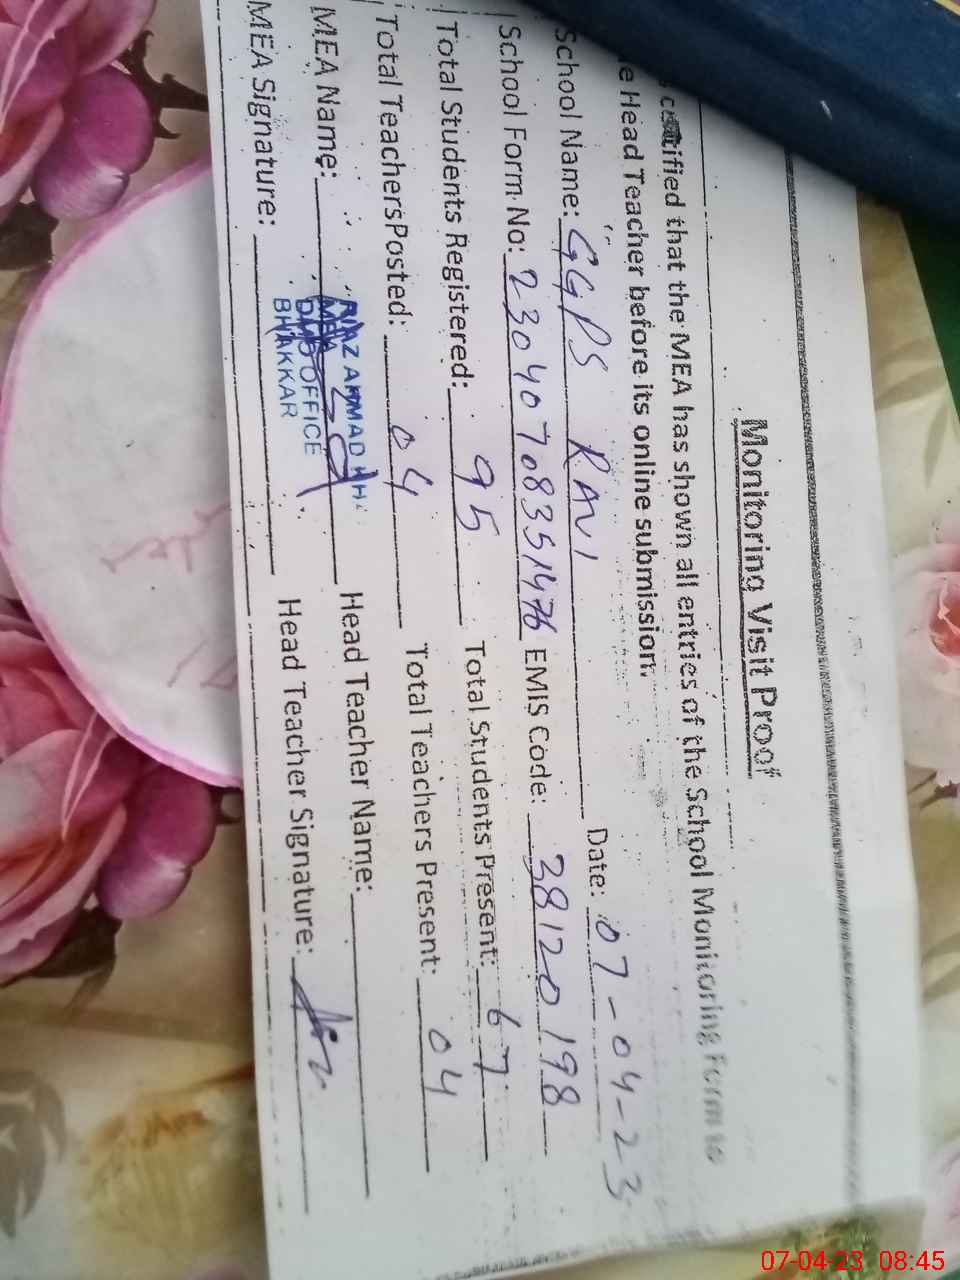 Monitoring Visit Proof
certified that the MEA has shown all entries of the School Monitoring Form to
e Head Teacher before its online submission.
School Name: GGPS RAVI Date: 07-04-23
School Form No: EMIS Code: 38120198
Total Students Registered: 95 Total Students Present: 67
Total Teachers Posted: 04 Total Teachers Present: 04
MEA Name: Head Teacher Name:
MEA Signature: Head Teacher Signature:
AHMAD
OFFICE
BHAKKAR
07-04-23 08:45